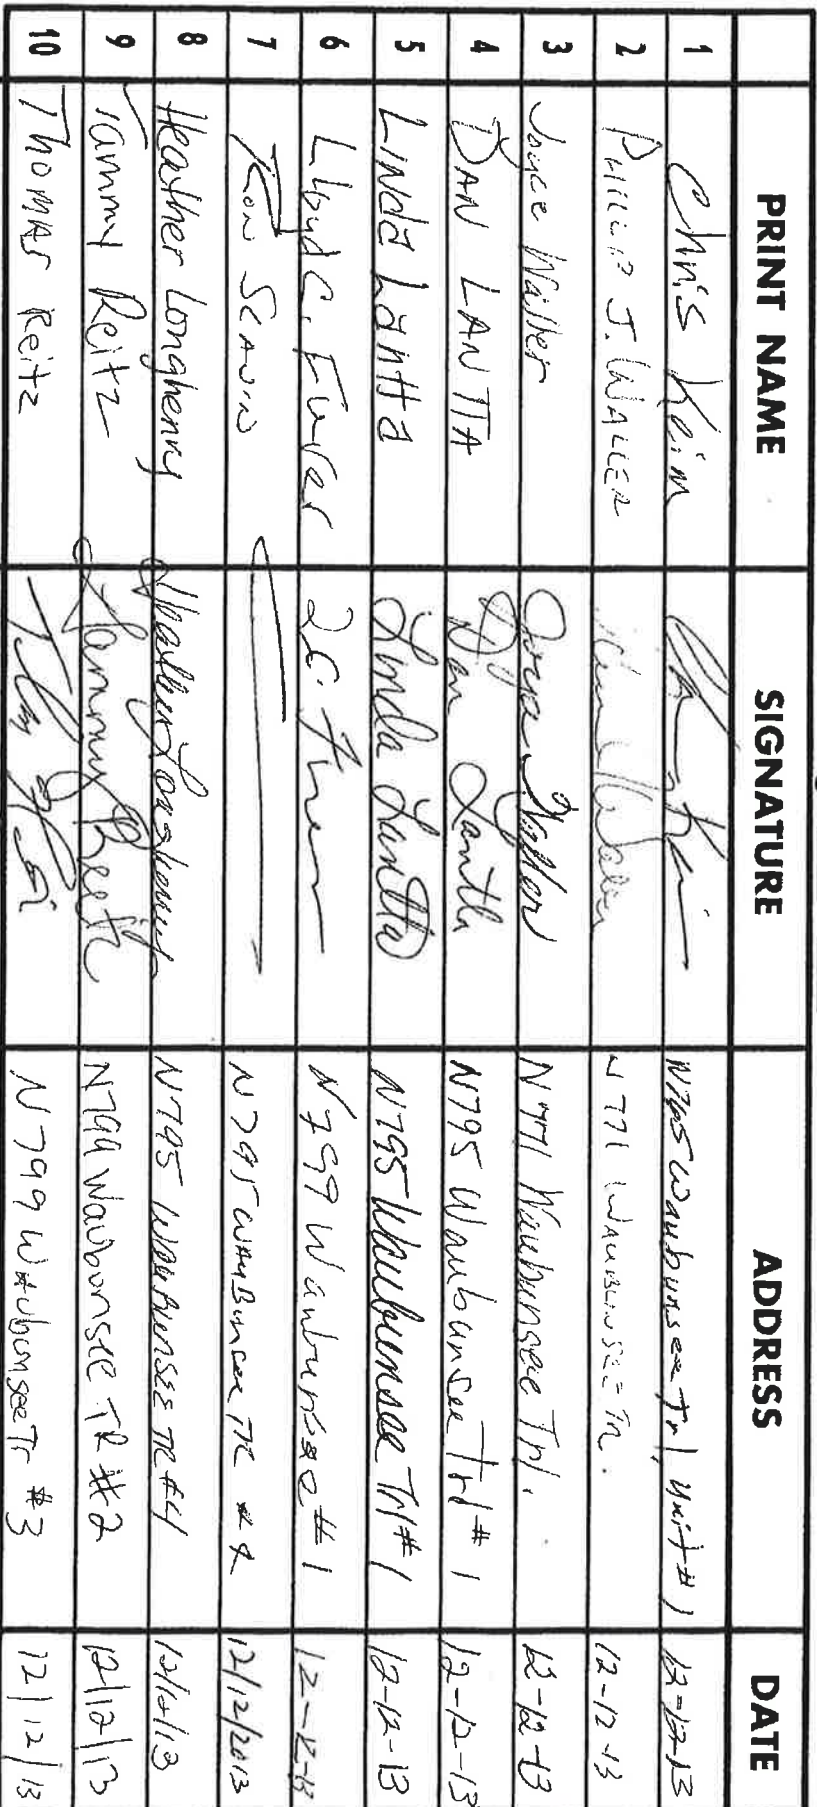 PRINT NAME SIGNATURE ADDRESS DATE
1 Chris Keim N765 Waubunsee Trl, Unit #1 12-12-13
2 Phillip J. Waller N771 Waubunsee Tr. 12-12-13
3 Joyce Waller Joyce Waller N771 Waubunsee Trl. 12-12-13
4 DAN LANTTA Dan Lantta N795 Waubunsee Trl #1 12-12-13
5 Linda Lantta Linda Lantta N795 Waubunsee Trl #1 12-12-13
6 Lloyd C. Furer N799 Waubunsee #1 12-12-13
7 Ron N795 Waubunsee TR #4 12/12/2013
8 Heather Longhenry Heather Longhenry N795 Waubunsee TR #4 12/12/13
9 Tammy Reitz Tammy Reitz N799 Waubonsee TR #2 12/12/13
10 Thomas Reitz N799 Waubonsee Tr #3 12/12/13